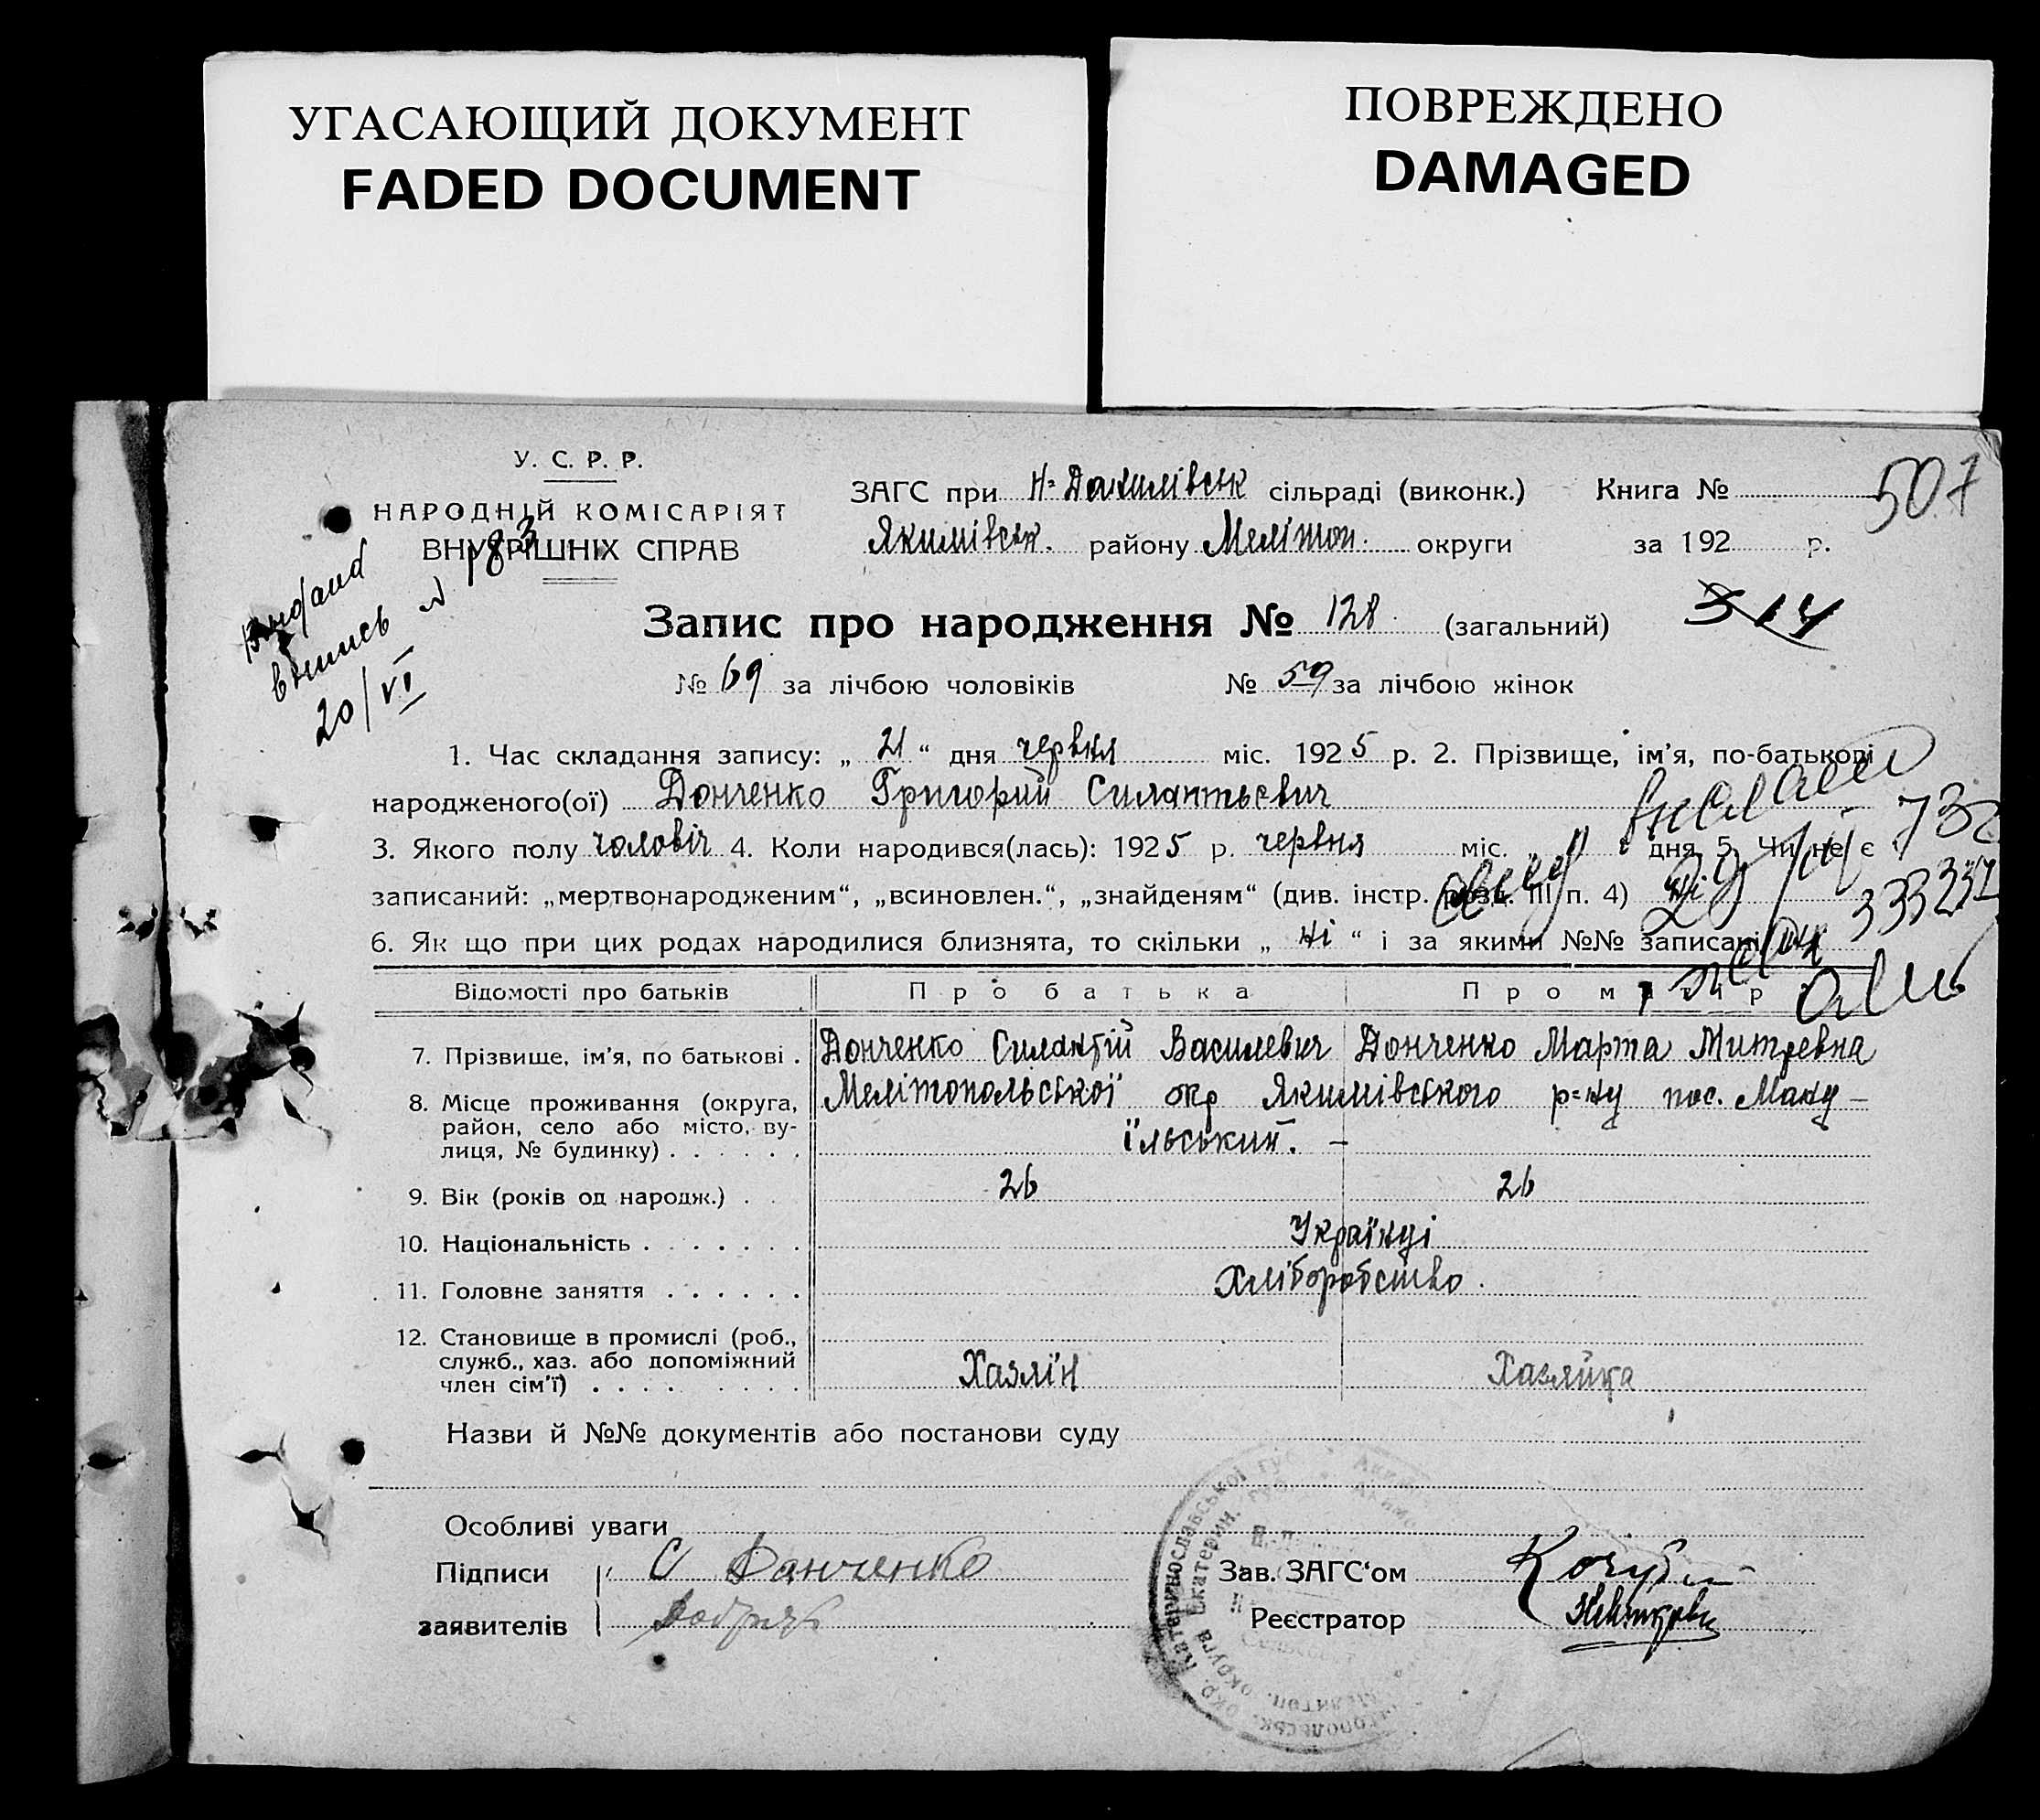 УГАСАЮЩИЙ ДОКУМЕНТ
FADED DOCUMENT
ПОВРЕЖДЕНО
DAMAGED
У. С. Р. Р.
НАРОДНІЙ КОМІСАРІЯТ
ВНУТРІШНІХ СПРАВ
ЗАГС при Н=Данилівськ сільраді (виконк.) Книга №
507
Якимівськ. району Меліто п. округи за 192 р.
выпись № 183
20/VI
Запис про народження № 128. (загальний)
314
№ 69 за лічбою чоловіків № 59 за лічбою жінок
1. Час складання запису: „ 21 “ дня червня міс. 1925 р. 2. Прізвище, ім'я, по-батькові
народженого(ої) Донченко Григорий Силантьевич
3. Якого полу чоловіч 4. Коли народився(лась): 1925 р. червня міс. дня 5. Чи не є
записаний: „мертвонародженим“, „всиновлен.“, „знайденям“ (див. інстр. розд. III п. 4) ні
6. Як що при цих родах народилися близнята, то скільки „ ні “ і за якими №№ записані
Відомості про батьків Про батька Про матір
7. Прізвище, ім'я, по батькові . Донченко Силантій Василевич Донченко Марта Митревна
8. Місце проживання (округа, район, село або місто, вулиця, № будинку) . . . . . . Мелітопольської окр Якимівського р=ну пос. Ману-
їльський. —
9. Вік (років од народж.) . . 26 26
10. Національність . . . . . . . Українці
11. Головне заняття . . . . . . Хліборобство.
12. Становище в промислі (роб., служб., хаз. або допоміжний член сім'ї) . . . . . . . . Хазяїн Хазяйка
Назви й №№ документів або постанови суду
Особливі уваги
Підписи С Данченко Зав. ЗАГС'ом
заявителів Реєстратор